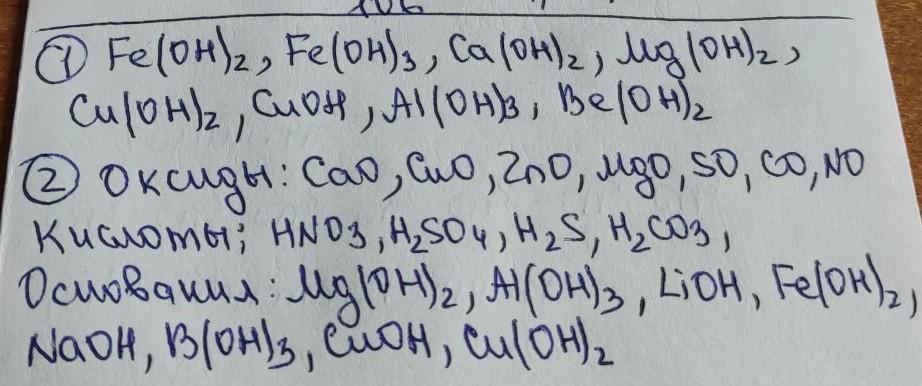 ① Fe(OH)₂, Fe(OH)₃, Ca(OH)₂, Mg(OH)₂,
Cu(OH)₂, CuOH, Al(OH)₃, Be(OH)₂
② Оксиды: CaO, CuO, ZnO, MgO, SO, CO, NO
Кислоты; HNO₃, H₂SO₄, H₂S, H₂CO₃,
Основания: Mg(OH)₂, Al(OH)₃, LiOH, Fe(OH)₂,
NaOH, B(OH)₃, CuOH, Cu(OH)₂